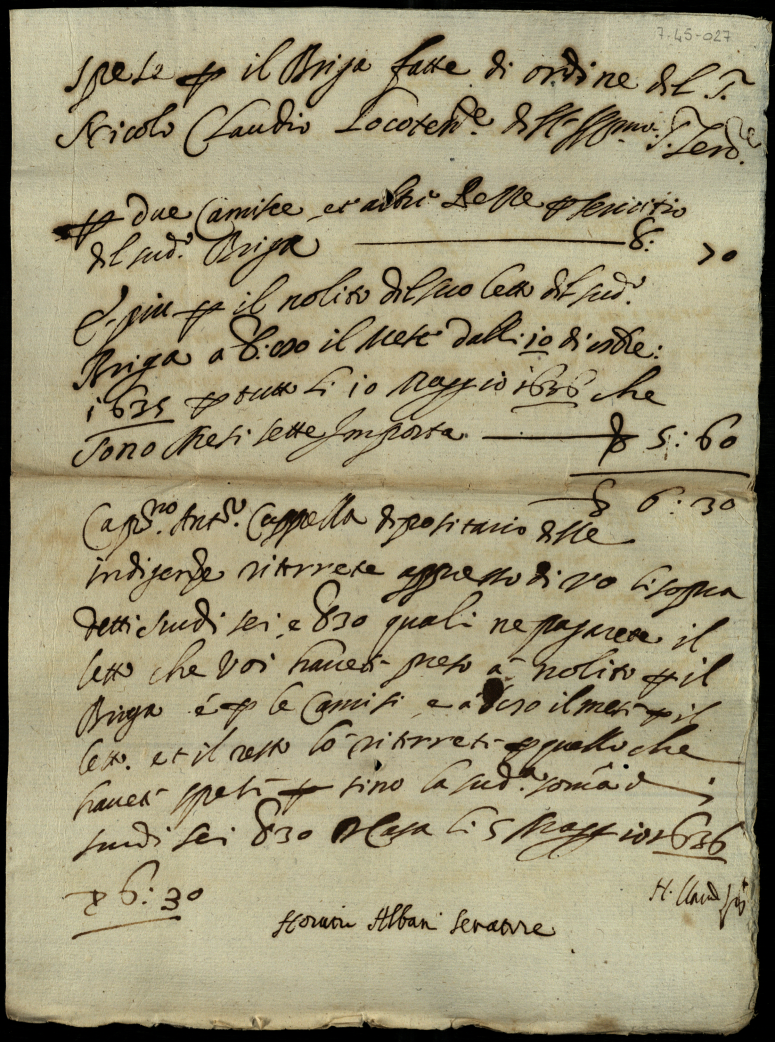 7.45-027
spese p il Briga fatte di ordine del S.r
Nicolo Claudio Locoten.te dell
p due Camise et altri p servitio
del sud.o Briga 8: 70
E piu p il nolito del suo letto del sud.o
Briga a il mese dalli 10 di
1635 p tutto li 10 Maggio 1636 che
sono mesi sette Importa 5:60
6:30
Cap.no Ant.o Cappella depositario delle
ritirrete appresso di voi
detti scudi sei e 30 quali ne pagarete il
letto che voi havete preso à nolito p il
Briga é p le Camise e a il mese p il
letto. et il resto lo ritirrete p quello che
havete speso p sino la sud.a somã
scudi sei 30 Casa li 5 Maggio 1636
6:30
Horatio Albani Senatore